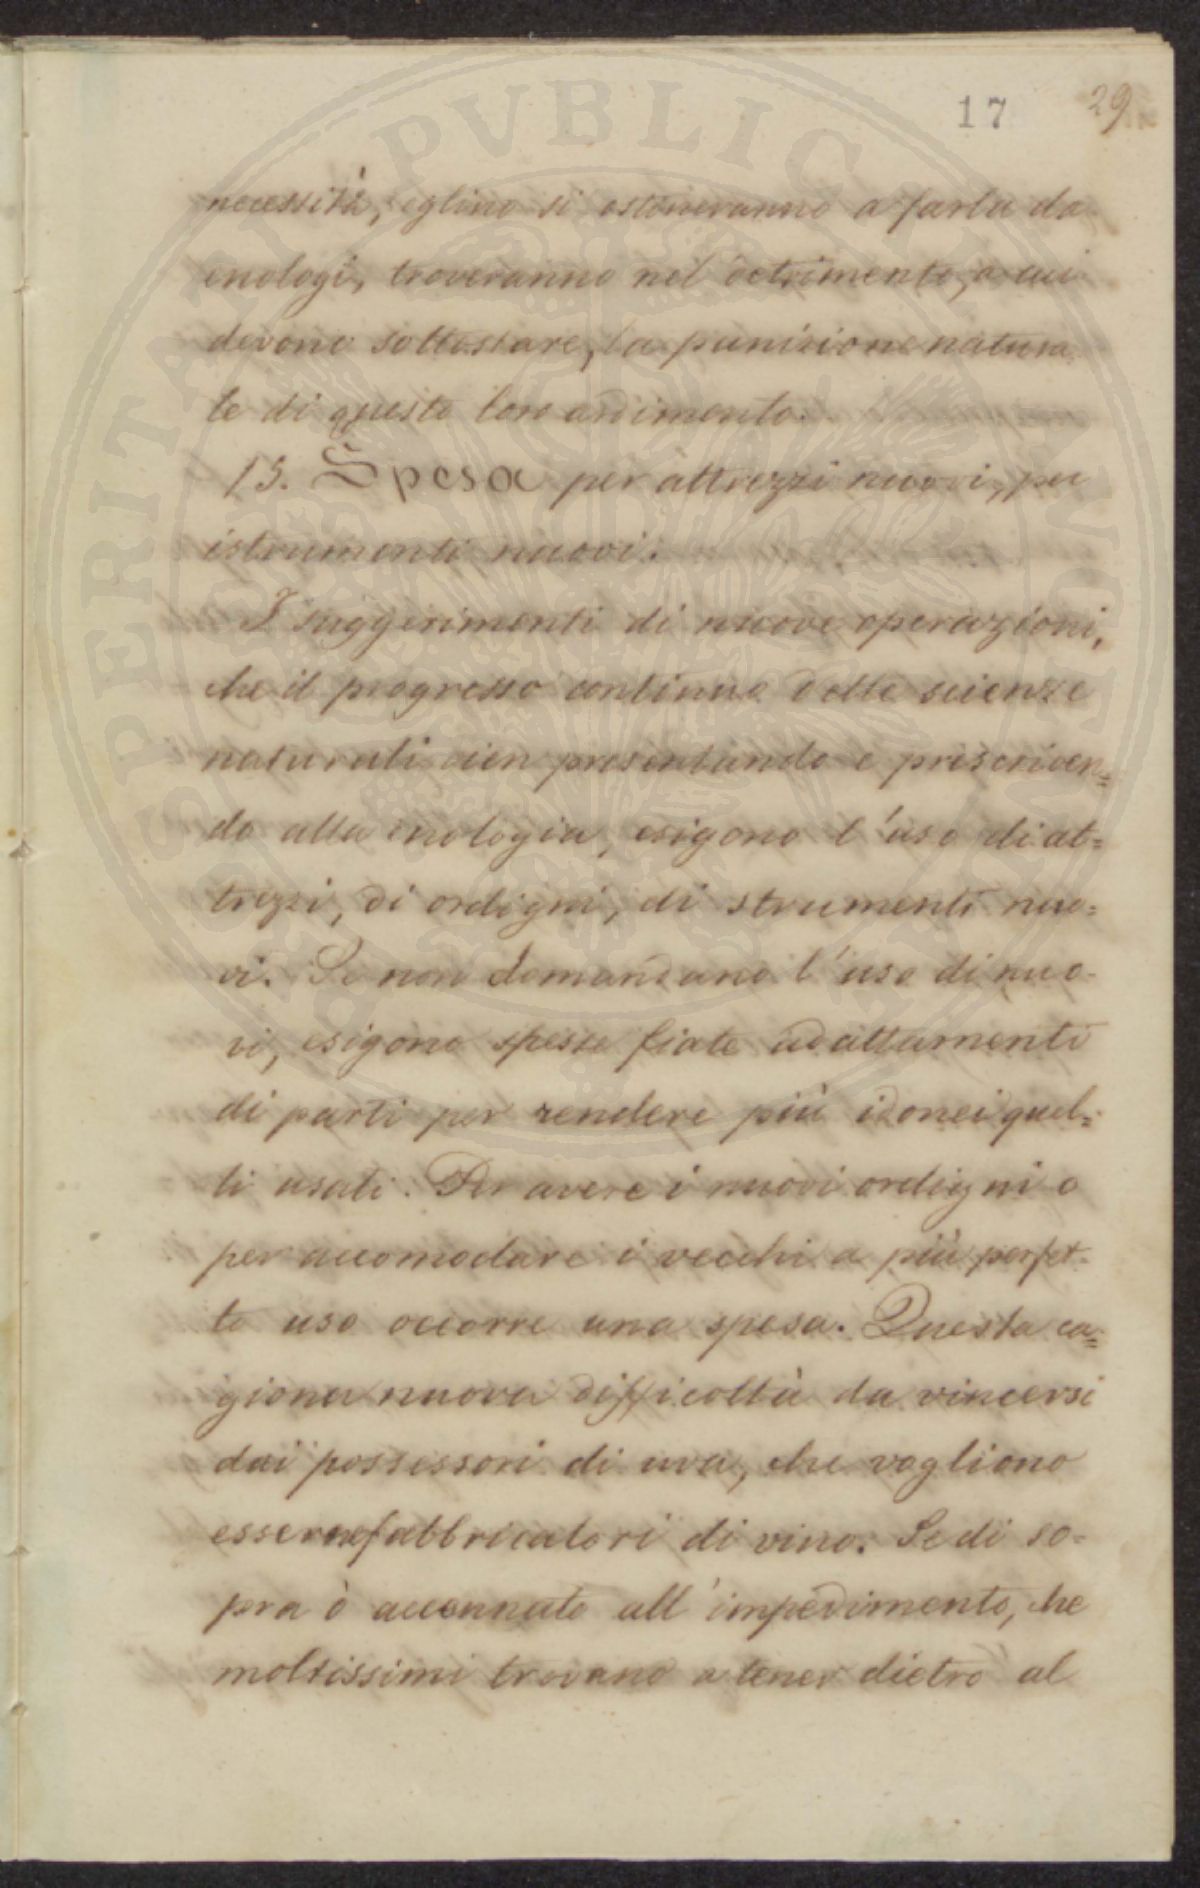 17 29
necessità, eglino si ostineranno a farla da
enologi, troveranno nel detrimento, a cui
devono sottostare, la punizione natura
le di questo loro ardimento.
13. Spesa per attrezzi nuovi, per
istrumenti nuovi.
I suggerimenti di nuove operazioni,
che il progresso continuo delle scienze
naturali vien presentando e prescriven=
do alla enologia, esigono l'uso di at=
trezzi, di ordigni, di strumenti nuo=
vi. Se non domandano l'uso di nuo-
vi, esigono spesse fiate adattamenti
di parti per rendere più idonei quel=
li usati. Per avere i nuovi ordigni o
per accomodare i vecchi a più perfet-
to uso occorre una spesa. Questa ca=
giona nuova difficoltà da vincersi
dai possessori di uva, che vogliono
esserne fabbricatori di vino. Se di so-
pra ò accennato all'impedimento, che
moltissimi trovano a tener dietro al